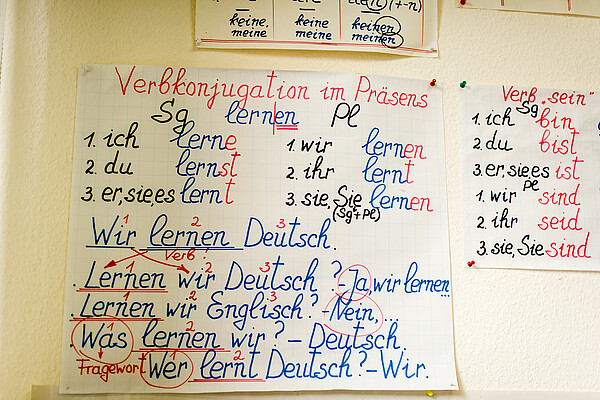 die(n) (+-n)
keine, keine keinen
meine meine meinen
Verbkonjugation im Präsens
Sg lernen Pl
1. ich lerne 1. wir lernen
2. du lernst 2. ihr lernt
3. er, sie, es lernt 3. sie, Sie lernen
(Sg+Pl)
1 2 3
Wir lernen Deutsch.
Verb!
1 2 3
Lernen wir Deutsch? - Ja, wir lernen...
1 2 3
Lernen wir Englisch? - Nein, ...
1 2
Was lernen wir? - Deutsch.
Fragewort 1 2 3
Wer lernt Deutsch? - Wir.
Verb „sein"
Sg
1. ich bin
2. du bist
3. er, sie, es ist
Pl
1. wir sind
2. ihr seid
3. sie, Sie sind